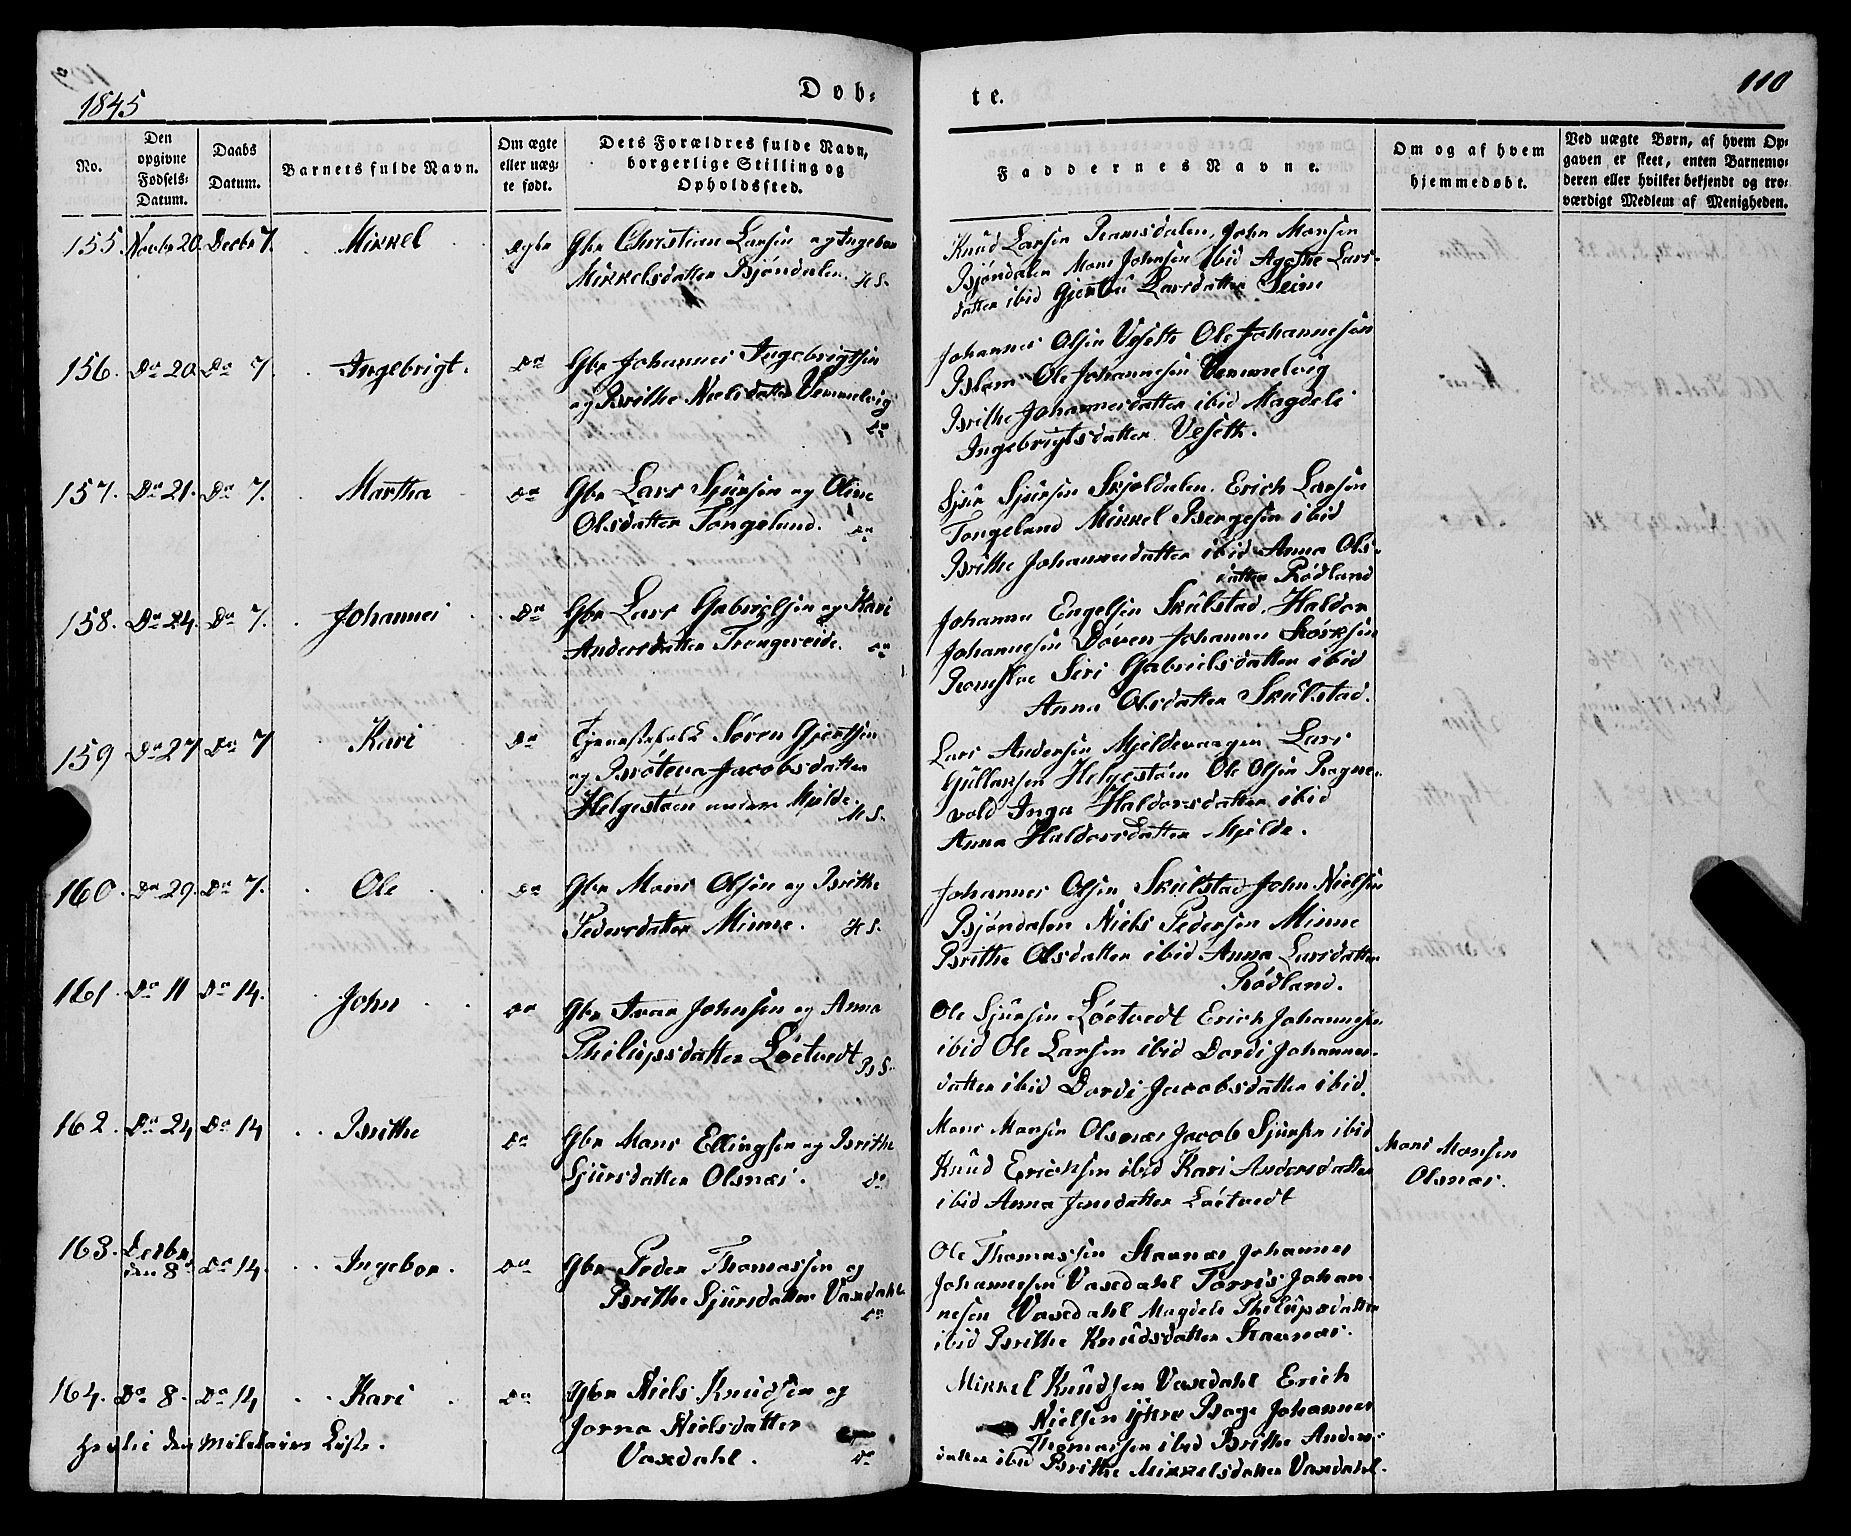 1845
Døb-
te.
110
No.
Den opgivne Fødsels-Datum.
Daabs Datum.
Barnets fulde Navn.
Om ægte eller uæg-te født.
Dets Forældres fulde Navn, borgerlige Stilling og Opholdssted.
Faddernes Navne.
Om og af hvem hjemmedøbt.
Ved uægte Børn, af hvem Op-gaven er skeet, enten Barnemo-deren eller hvilket bekjendt og tro-værdigt Medlem af Menigheden.
155. Novbr 20. Decbr 7. Mikkel ægte
Gbr Christian Larsen og Ingebor
Mikkelsdatter Bjøndalen. HS.
Knud Larsen Ramsdalen, John Monsen
Bjøndalen Mons Johnsen ibid Agathe Lars-
datter ibid Gjertru Larsdatter Seim
156. Do 20 Do 7. Ingebrigt. Do
Gbr Johannes Ingebrigtsen
og Brithe Neelsdatter Vemmelvig
Do
Johannes Olsen Veseth Ole Johannesen
Ole Johannesen Vemmelvig
Brithe Johannesdatter ibid Magdeli
Ingebrigtsdatter Veseth.
157. Do 21. Do 7. Martha Do
Gbr Lars Sjursen og Oline
Olsdatter Tongeland. Do
Sjur Sjursen Skjoldalen. Erich Larsen
Tongeland Mikkel Bergesen ibid
Brithe Johannesdatter ibid Anna Ols-
datter Rødland
158. Do 24. Do 7. Johannes Do
Gbr Lars Gabrielsen og Kari
Andersdatter Trongereide. Do
Johannes Engelsen Skulstad, Haldor
Johannesen Døven Johannes Størksen
Romsloe Siri Gabrielsdatter ibid
Anna Olsdatter Skulstad.
159 Do 27 Do 7 Kari Do
Tjenestekarl Søren Gjertsen
og Brøteva Jacobsdatter
Helgestøen under Mjelde. HS.
Lars Andersen Mjeldevaagen Lars
Gullaksen Helgestøen Ole Olsen Ragne-
vold Inga Haldorsdatter ibid
Anna Haldorsdatter Mjelde.
160. Do 29. Do 7. Ole Do
Gbr Mons Olsen og Brithe
Pedersdatter Minne. HS.
Johannes Olsen Skulstad John Nielsen
Bjøndalen Niels Pedersen Minne
Brithe Olsdatter ibid Anna Larsdatter
Rødland.
161. Do 11 Do 14. John Do
Gbr Ivar Johnsen og Anna
Philipsdatter Løetvedt BS.
Ole Sjursen Løetvedt Erich Johannesen
ibid Ole Larsen ibid Dordi Johannes-
datter ibid Dordi Jacobsdatter ibid.
162. Do 24 Do 14 Brithe Do
Gbr Mons Ellingsen og Brithe
Sjursdatter Olsnæs. Do
Mons Monsen Olsnæs Jacob Sjursen ibid
Knud Erichsen ibid Kari Andersdatter
ibid Anna Jensdatter Løetvedt
Mons Monsen
Olsnæs.
163. Decbr
den 8de Do 14. Ingebor. Do
Gbr Peder Thomassen og
Brithe Sjursdatter Vaxdahl
Do
Ole Thomassen Stavnæs Johannes
Johannesen Vaxdahl Torris Johan-
nesen Vaxdahl Magdeli Philipsdatter
ibid Brithe Knudsdatter Stavnæs.
164. Do 8. Do 14 Kari Do
Gbr Niels Knudsen og
Jorna Nielsdatter
Vaxdahl. Do
Mikkel Knudsen Vaxdahl Erich
Nielsen ytre Boge Johannes
Thomassen ibid Brithe Anders-
datter ibid Brithe Mikkelsdatter Vaxdahl.
den Militaire Liste.